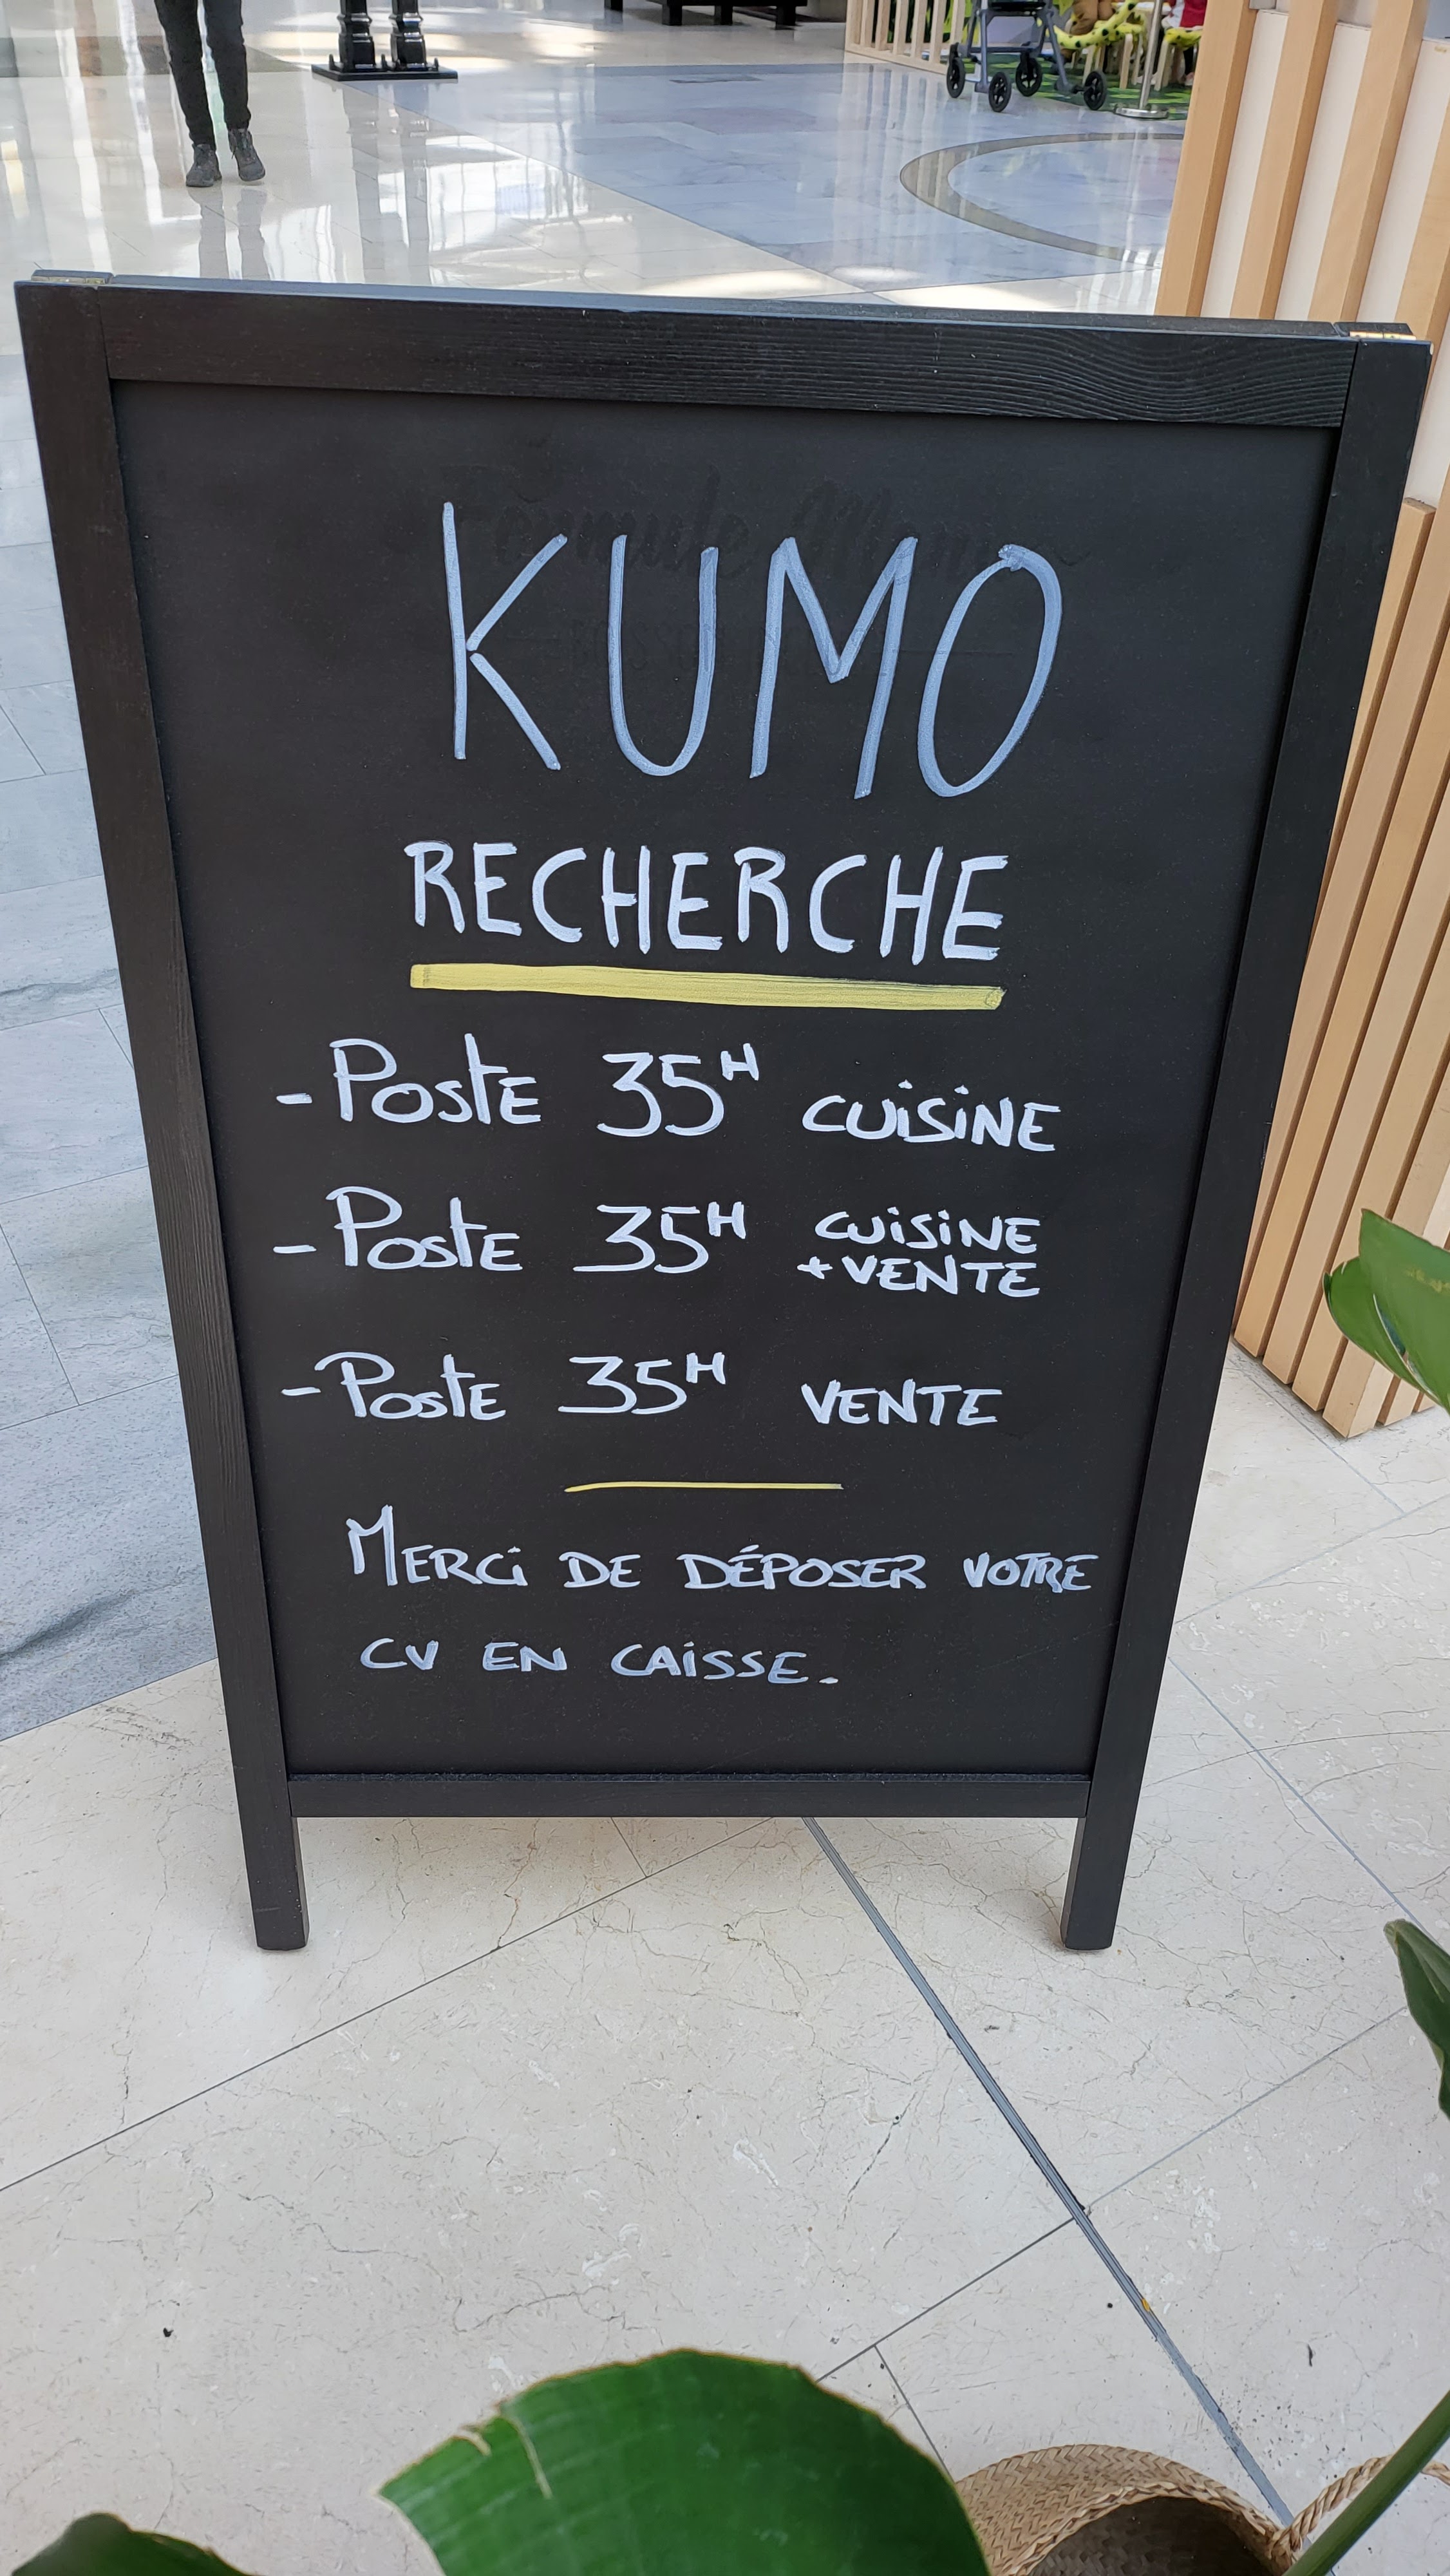 KUMO
RECHERCHE
- Poste 35H CUISINE
- Poste 35H CUISINE
+ VENTE
- Poste 35H VENTE
MERCI DE DÉPOSER VOTRE
CV EN CAISSE.